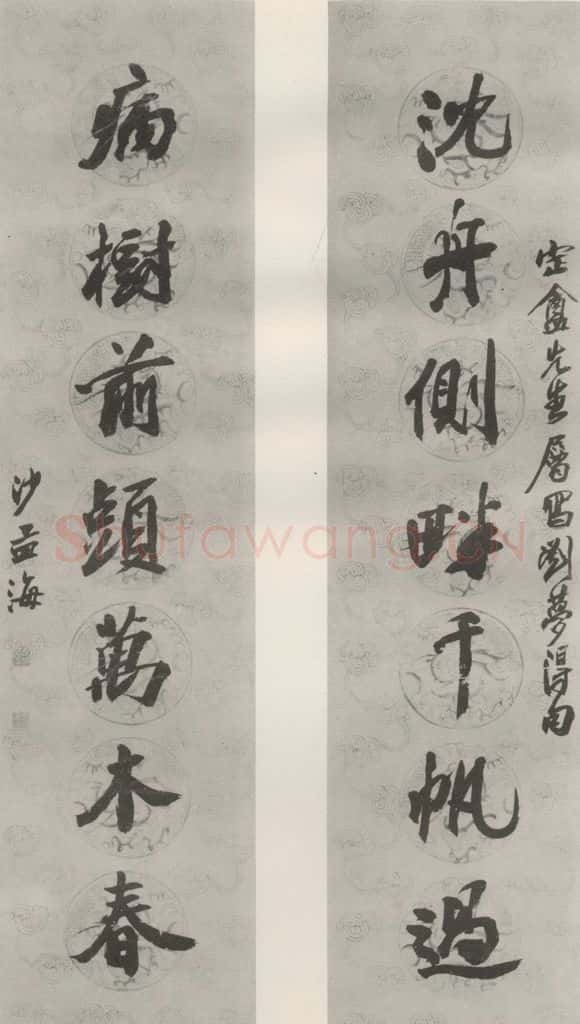 定盦先生屬寫劉夢得句
沈舟側畔千帆過
病樹前頭萬木春
沙孟海
Shufawang.CN